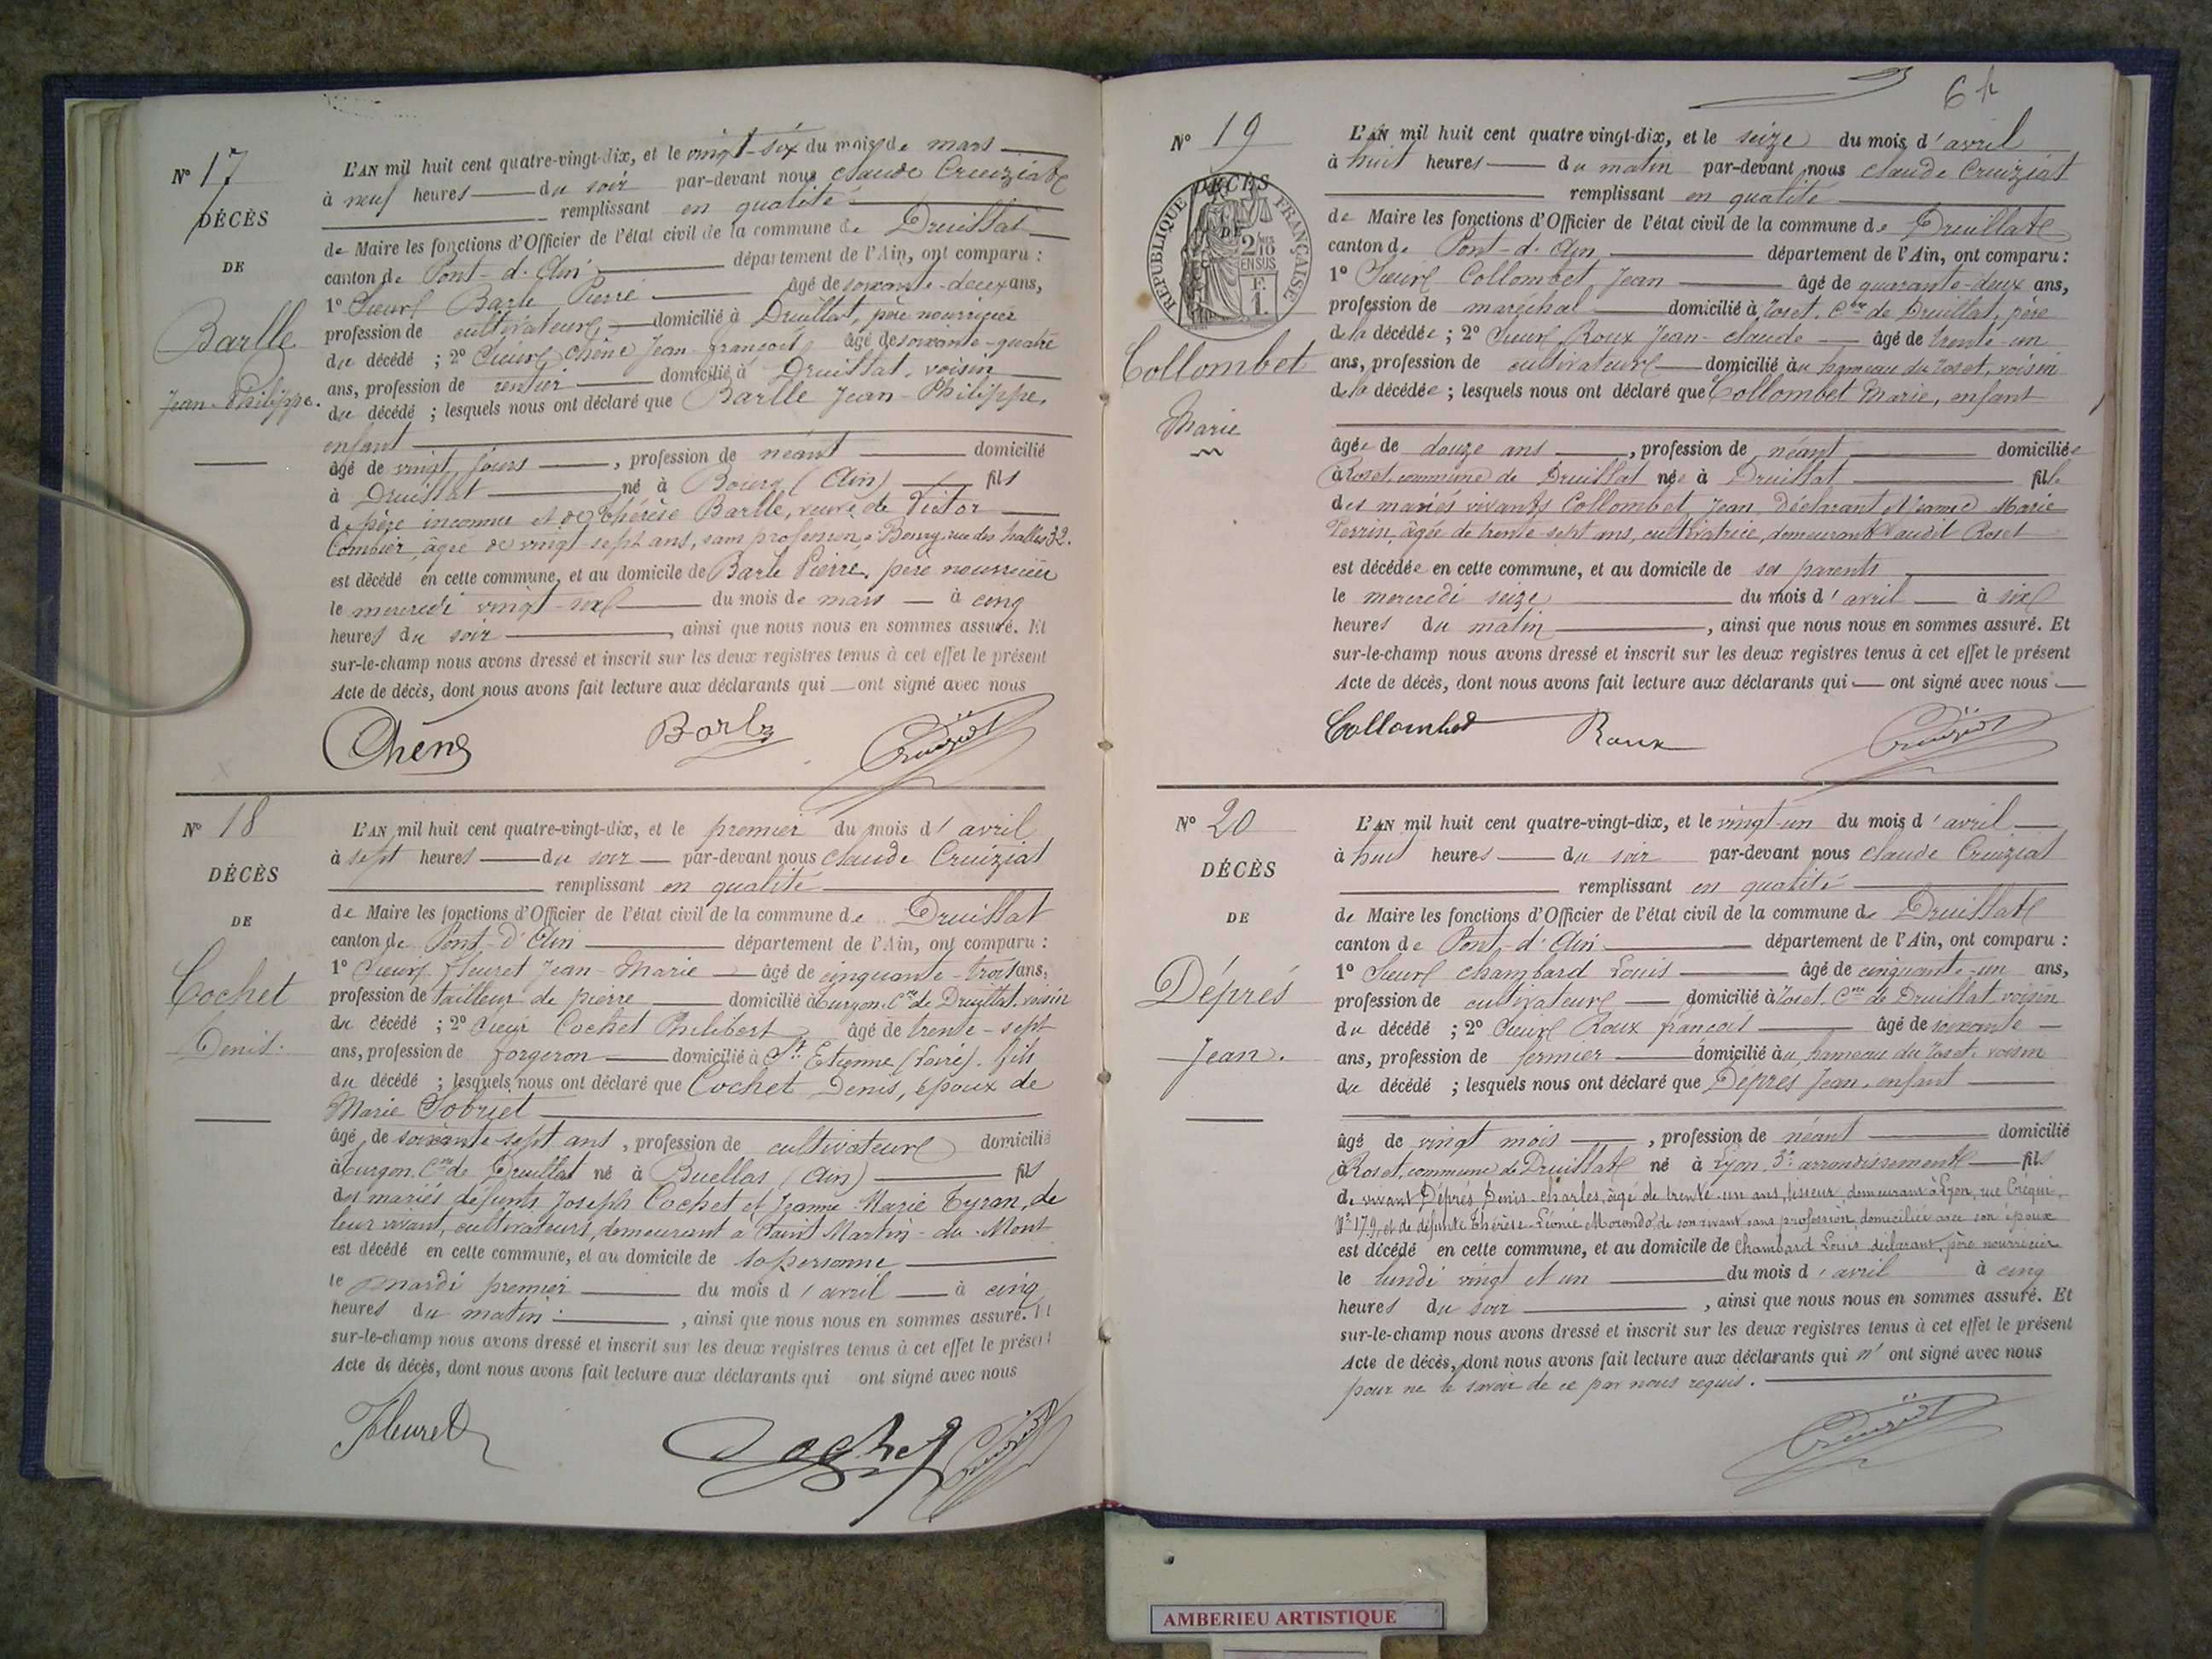 N° 17
DÉCÈS
DE
Barlle
Jean-Philippe.
L'AN mil huit cent quatre-vingt-dix, et le vingt-six du mois de mars
à neuf heures du soir par-devant nous Claude Cruiziat
remplissant en qualité
de Maire les fonctions d'Officier de l'état civil de la commune de Druillat
canton de Pont-d'Ain département de l'Ain, ont comparu :
1° Sieur Barle Pierre âgé de soixante-deux ans,
profession de cultivateur, domicilié à Druillat, père nourricier
du décédé ; 2° Sieur Chêne Jean-françois, âgé de soixante-quatre
ans, profession de rentier domicilié à Druillat, voisin
du décédé ; lesquels nous ont déclaré que Barlle Jean-Philippe,
enfant
âgé de vingt jours , profession de néant domicilié
à Druillat né à Bourg (Ain) fils
de père inconnu et de Thérèse Barlle, veuve de Victor
Combier, âgée de vingt-sept ans, sans profession, à Bourg, rue des halles 32.
est décédé en cette commune, et au domicile de Barle Pierre, père nourricier
le mercredi vingt-six du mois de mars à cinq
heures du soir , ainsi que nous nous en sommes assuré. Et
sur-le-champ nous avons dressé et inscrit sur les deux registres tenus à cet effet le présent
Acte de décès, dont nous avons fait lecture aux déclarants qui ont signé avec nous
Chêne Barle Cruiziat
N° 18
DÉCÈS
DE
Cochet
Denis.
L'AN mil huit cent quatre-vingt-dix, et le premier du mois d'avril
à sept heures du soir par-devant nous Claude Cruiziat
remplissant en qualité
de Maire les fonctions d'Officier de l'état civil de la commune de Druillat
canton de Pont-d'Ain département de l'Ain, ont comparu :
1° Sieur fleuret Jean-Marie âgé de cinquante-trois ans,
profession de tailleur de pierre domicilié à Turgon, Cne de Druillat, voisin
du décédé ; 2° Sieur Cochet Philibert âgé de trente-sept
ans, profession de forgeron domicilié à St Etienne (Loire), fils
du décédé ; lesquels nous ont déclaré que Cochet Denis, époux de
Marie Sobriet
âgé de soixante-sept ans, profession de cultivateur domicilié
à Turgon, Cne de Druillat né à Buellas (Ain) fils
des mariés défunts Joseph Cochet et Jeanne-Marie Tyran, de
leur vivant, cultivateurs, demeurant à Saint Martin-du-Mont
est décédé en cette commune, et au domicile de sa personne
le mardi premier du mois d'avril à cinq
heures du matin , ainsi que nous nous en sommes assuré. Et
sur-le-champ nous avons dressé et inscrit sur les deux registres tenus à cet effet le présent
Acte de décès, dont nous avons fait lecture aux déclarants qui ont signé avec nous
Fleuret Cochet Cruiziat
6
N° 19
DÉCÈS
DE
RÉPUBLIQUE FRANÇAISE
2/10 EN SUS
F. 1.
Collombet
Marie
L'AN mil huit cent quatre vingt-dix, et le seize du mois d'avril
à huit heures du matin par-devant nous Claude Cruiziat
remplissant en qualité
de Maire les fonctions d'Officier de l'état civil de la commune de Druillat
canton de Pont-d'Ain département de l'Ain, ont comparu :
1° Sieur Collombet Jean âgé de quarante-deux ans,
profession de maréchal domicilié à Roset, Cne de Druillat, père
de la décédée ; 2° Sieur Roux Jean-Claude âgé de trente-un
ans, profession de cultivateur domicilié au hameau du Roset, voisin
de la décédée ; lesquels nous ont déclaré que Collombet Marie, enfant
âgée de douze ans , profession de néant domiciliée
à Roset, commune de Druillat née à Druillat fille
des mariés vivants Collombet, Jean, déclarant et Jeanne Marie
Perrin, âgée de trente-sept ans, cultivatrice, demeurant audit Roset
est décédée en cette commune, et au domicile de ses parents
le mercredi seize du mois d'avril à six
heures du matin , ainsi que nous nous en sommes assuré. Et
sur-le-champ nous avons dressé et inscrit sur les deux registres tenus à cet effet le présent
Acte de décès, dont nous avons fait lecture aux déclarants qui ont signé avec nous
Collombet Roux Cruiziat
N° 20
DÉCÈS
DE
Déprés
Jean.
L'AN mil huit cent quatre-vingt-dix, et le vingt-un du mois d'avril
à huit heures du soir par-devant nous Claude Cruiziat
remplissant en qualité
de Maire les fonctions d'Officier de l'état civil de la commune de Druillat
canton de Pont-d'Ain département de l'Ain, ont comparu :
1° Sieur Chambard Louis âgé de cinquante-un ans,
profession de cultivateur domicilié à Roset, Cne de Druillat, voisin
du décédé ; 2° Sieur Roux françois âgé de soixante
ans, profession de fermier domicilié au hameau du Roset, voisin
du décédé ; lesquels nous ont déclaré que Déprés Jean, enfant
âgé de vingt mois , profession de néant domicilié
à Roset, commune de Druillat né à Lyon, 3e arrondissement fils
de vivant Déprés Denis-Charles, âgé de trente-un ans, tisseur, demeurant à Lyon, rue Créqui,
N° 179, et de défunte Thérèse-Léonie Morondo, de son vivant sans profession, domiciliée avec son époux
est décédé en cette commune, et au domicile de Chambard Louis déclarant, père nourricier
le lundi vingt et un du mois d'avril à cinq
heures du soir , ainsi que nous nous en sommes assuré. Et
sur-le-champ nous avons dressé et inscrit sur les deux registres tenus à cet effet le présent
Acte de décès, dont nous avons fait lecture aux déclarants qui n'ont signé avec nous
pour ne le savoir de ce par nous requis.
Cruiziat
AMBERIEU ARTISTIQUE